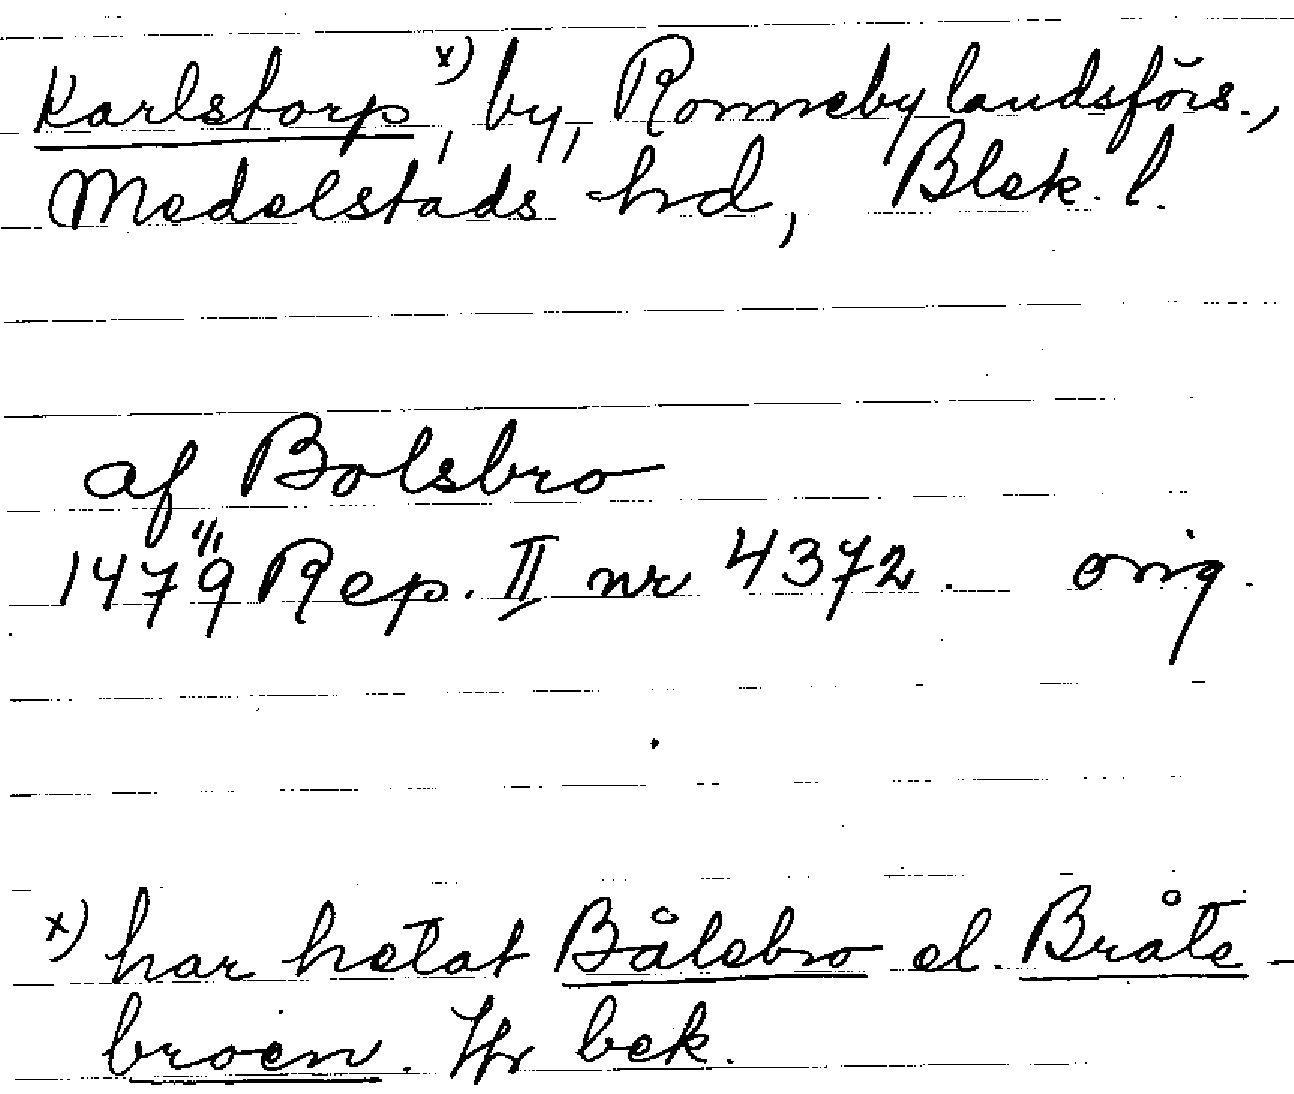 Karlstorp x), by, Ronneby landsförs.,
Medelstads hd, Blek. l.
af Bolsbro
1479 1/11 Rep. II nr 4372. orig.
x) har hetat Bålebro el. Bråte-
broen. Jfr bek.